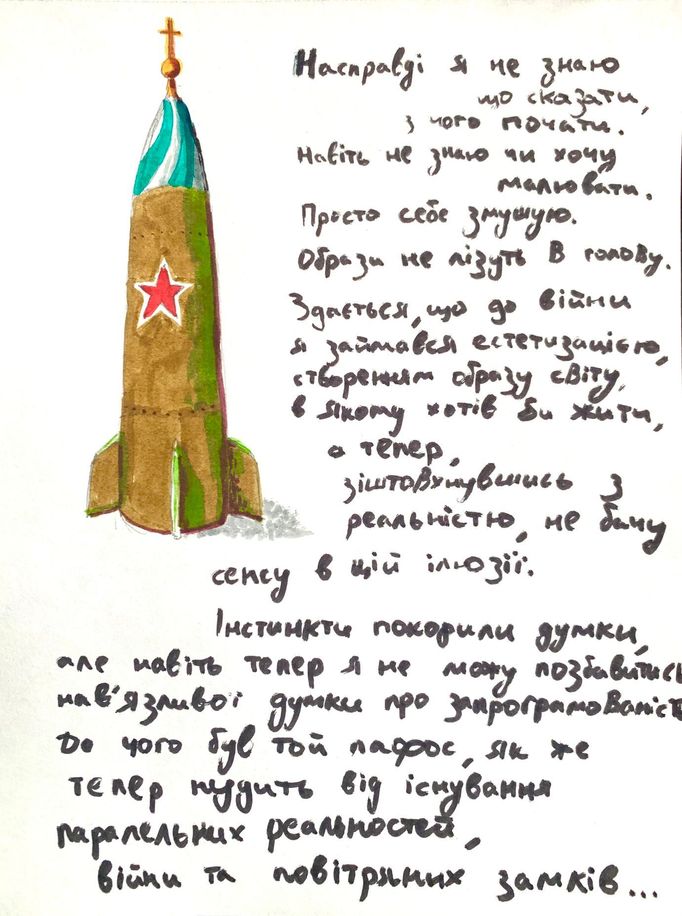 Насправді я не знаю
що сказати,
з чого почати.
Навіть не знаю чи хочу
малювати.
Просто себе змушую.
Образи не лізуть в голову.
Здається, що до війни
я займався естетизацією,
створенням образу світу,
в якому хотів би жити,
а тепер,
зіштовхнувшись з
реальністю, не бачу
сенсу в цій ілюзії.
Інстинкти покорили думки,
але навіть тепер я не можу позбавитись
нав'язливої думки про запрограмованість
До чого був той пафос, як же
тепер нудить від існування
паралельних реальностей,
війни та повітряних замків...